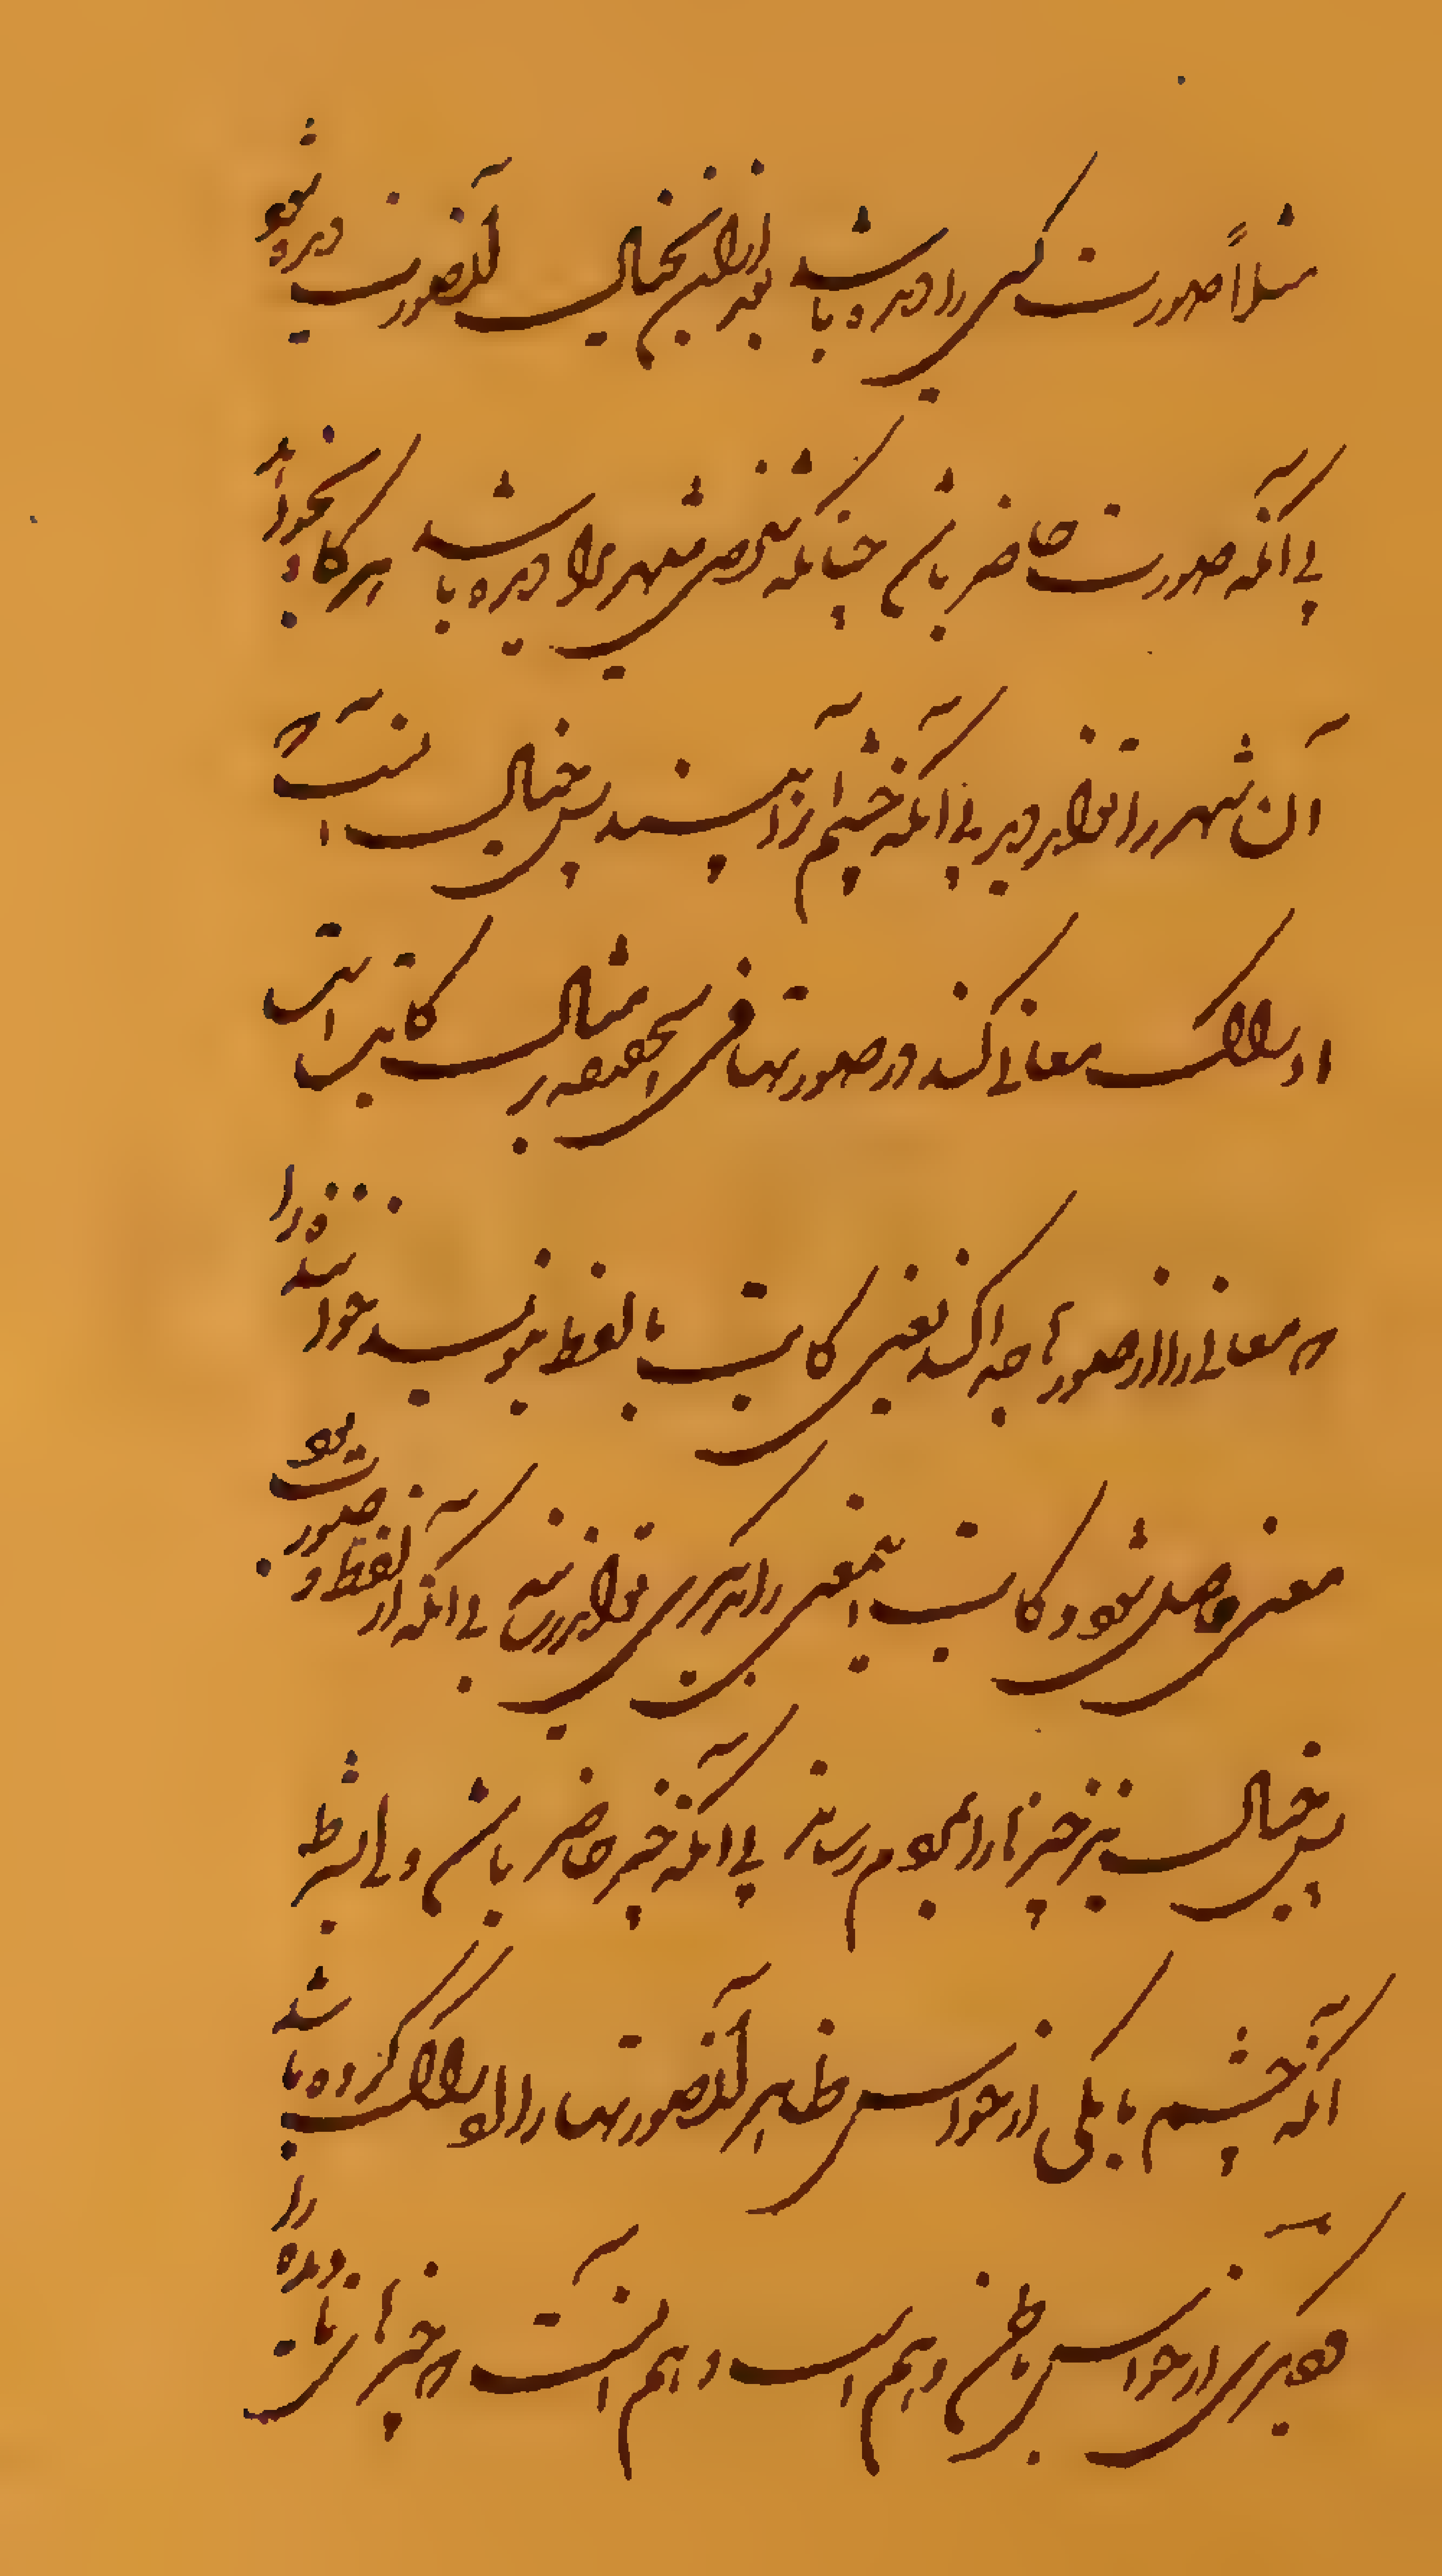 مثلاً صورت کسی را دیده باشد بعد ازان بخیال آنصورت دیده شود
بی آنکه صورت حاضر باشد چنانکه شخصی شهریرا دیده باشد هرگاه بخواهد
آن شهر را تواند دید بی آنکه چشم آنرا بیند پس خیال آنست که
ادراک معانی کند و صورتها فی الحقیقه بر مثال کتابت است
که معانی را از صورتها جدا کند یعنی کاتب تا لفظ ننویسد خواننده را
معنی حاصل نشود و کاتب اینمعنی را بدیگری تواند رسانید بی آنکه از لفظ و صورت بود
پس خیال نیز چیزها را بمردم رساند بی آنکه چیز حاضر باشد ولی بشرط
آنکه چشم یا یکی از حواس ظاهر آنصورتها را ادراک کرده باشد
و دیگری از حواس باطن وهم است و هم آنست که چیزهای نادیده را